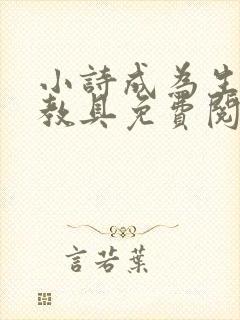 小詩成為生
教具免費閱
言若葉